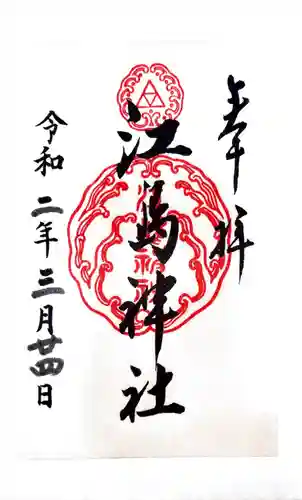 奉拝
江島神社
令和二年三月廿四日